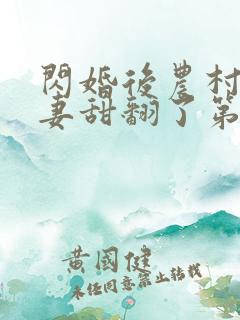 閃婚後農村
妻甜翻了第
黃國健
未任同意禁止转载